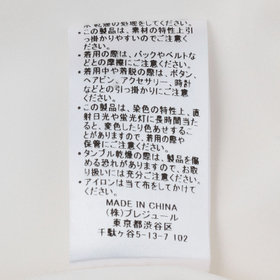 水乾燥の処理をしてください。
・この製品は、素材の特性上引
っ掛かりやすいのでご注意くだ
さい。
・着用の際は、バックやベルトな
どとの摩擦にご注意ください。
・着用中や着脱の際は、ボタン、
ヘアピン、アクセサリー、時計
などとの引っ掛かりにご注意く
ださい。
・この製品は、染色の特性上、直
射日光や蛍光灯に長時間当た
ると、変色したり色あせするこ
とがありますので、着用の際や
保管にご注意ください。
・タンブル乾燥の際は、製品を傷
める恐れがありますので、お取
り扱いには充分ご注意ください。
・アイロンは当て布をしてかけて
ください。
MADE IN CHINA
(株)プレジュール
東京都渋谷区
千駄ヶ谷5-13-7 102